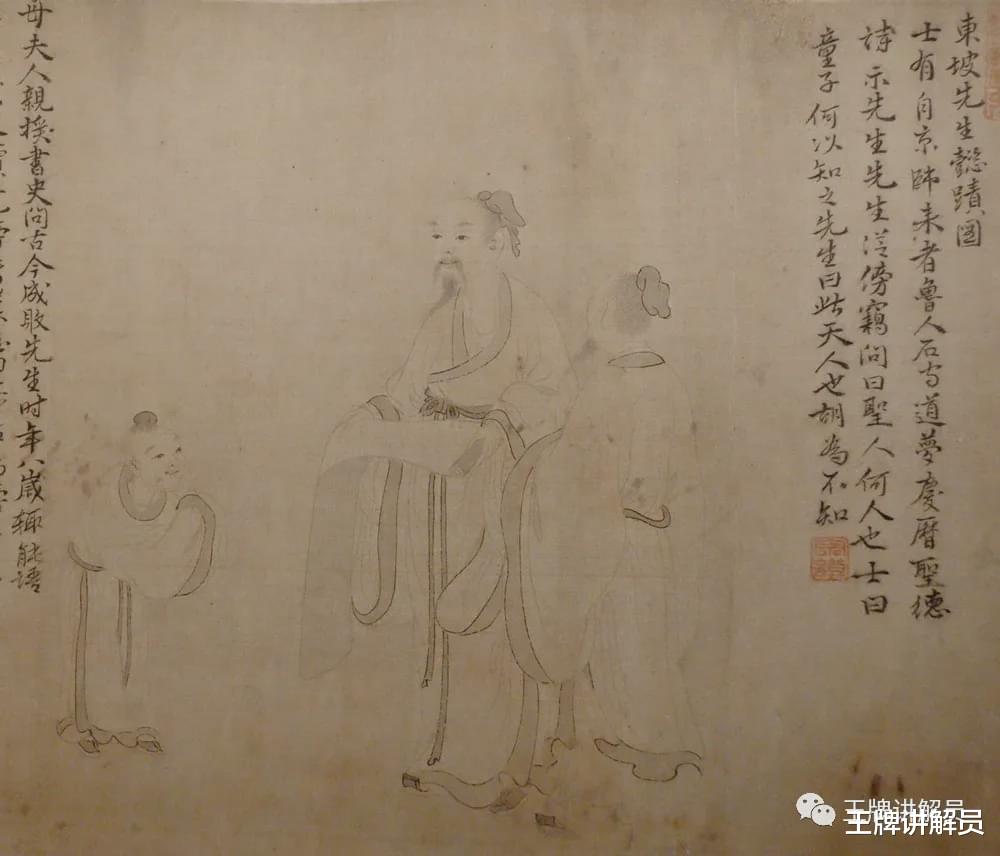 東坡先生懿蹟圖
士有自京師来者魯人石守道夢慶曆聖德
詩示先生先生從傍竊问曰聖人何人也士曰
童子何以知之先生曰此天人也胡為不知
母夫人親授書史问古今成敗先生时年八歲輒能語
王牌讲解员
王牌讲解员